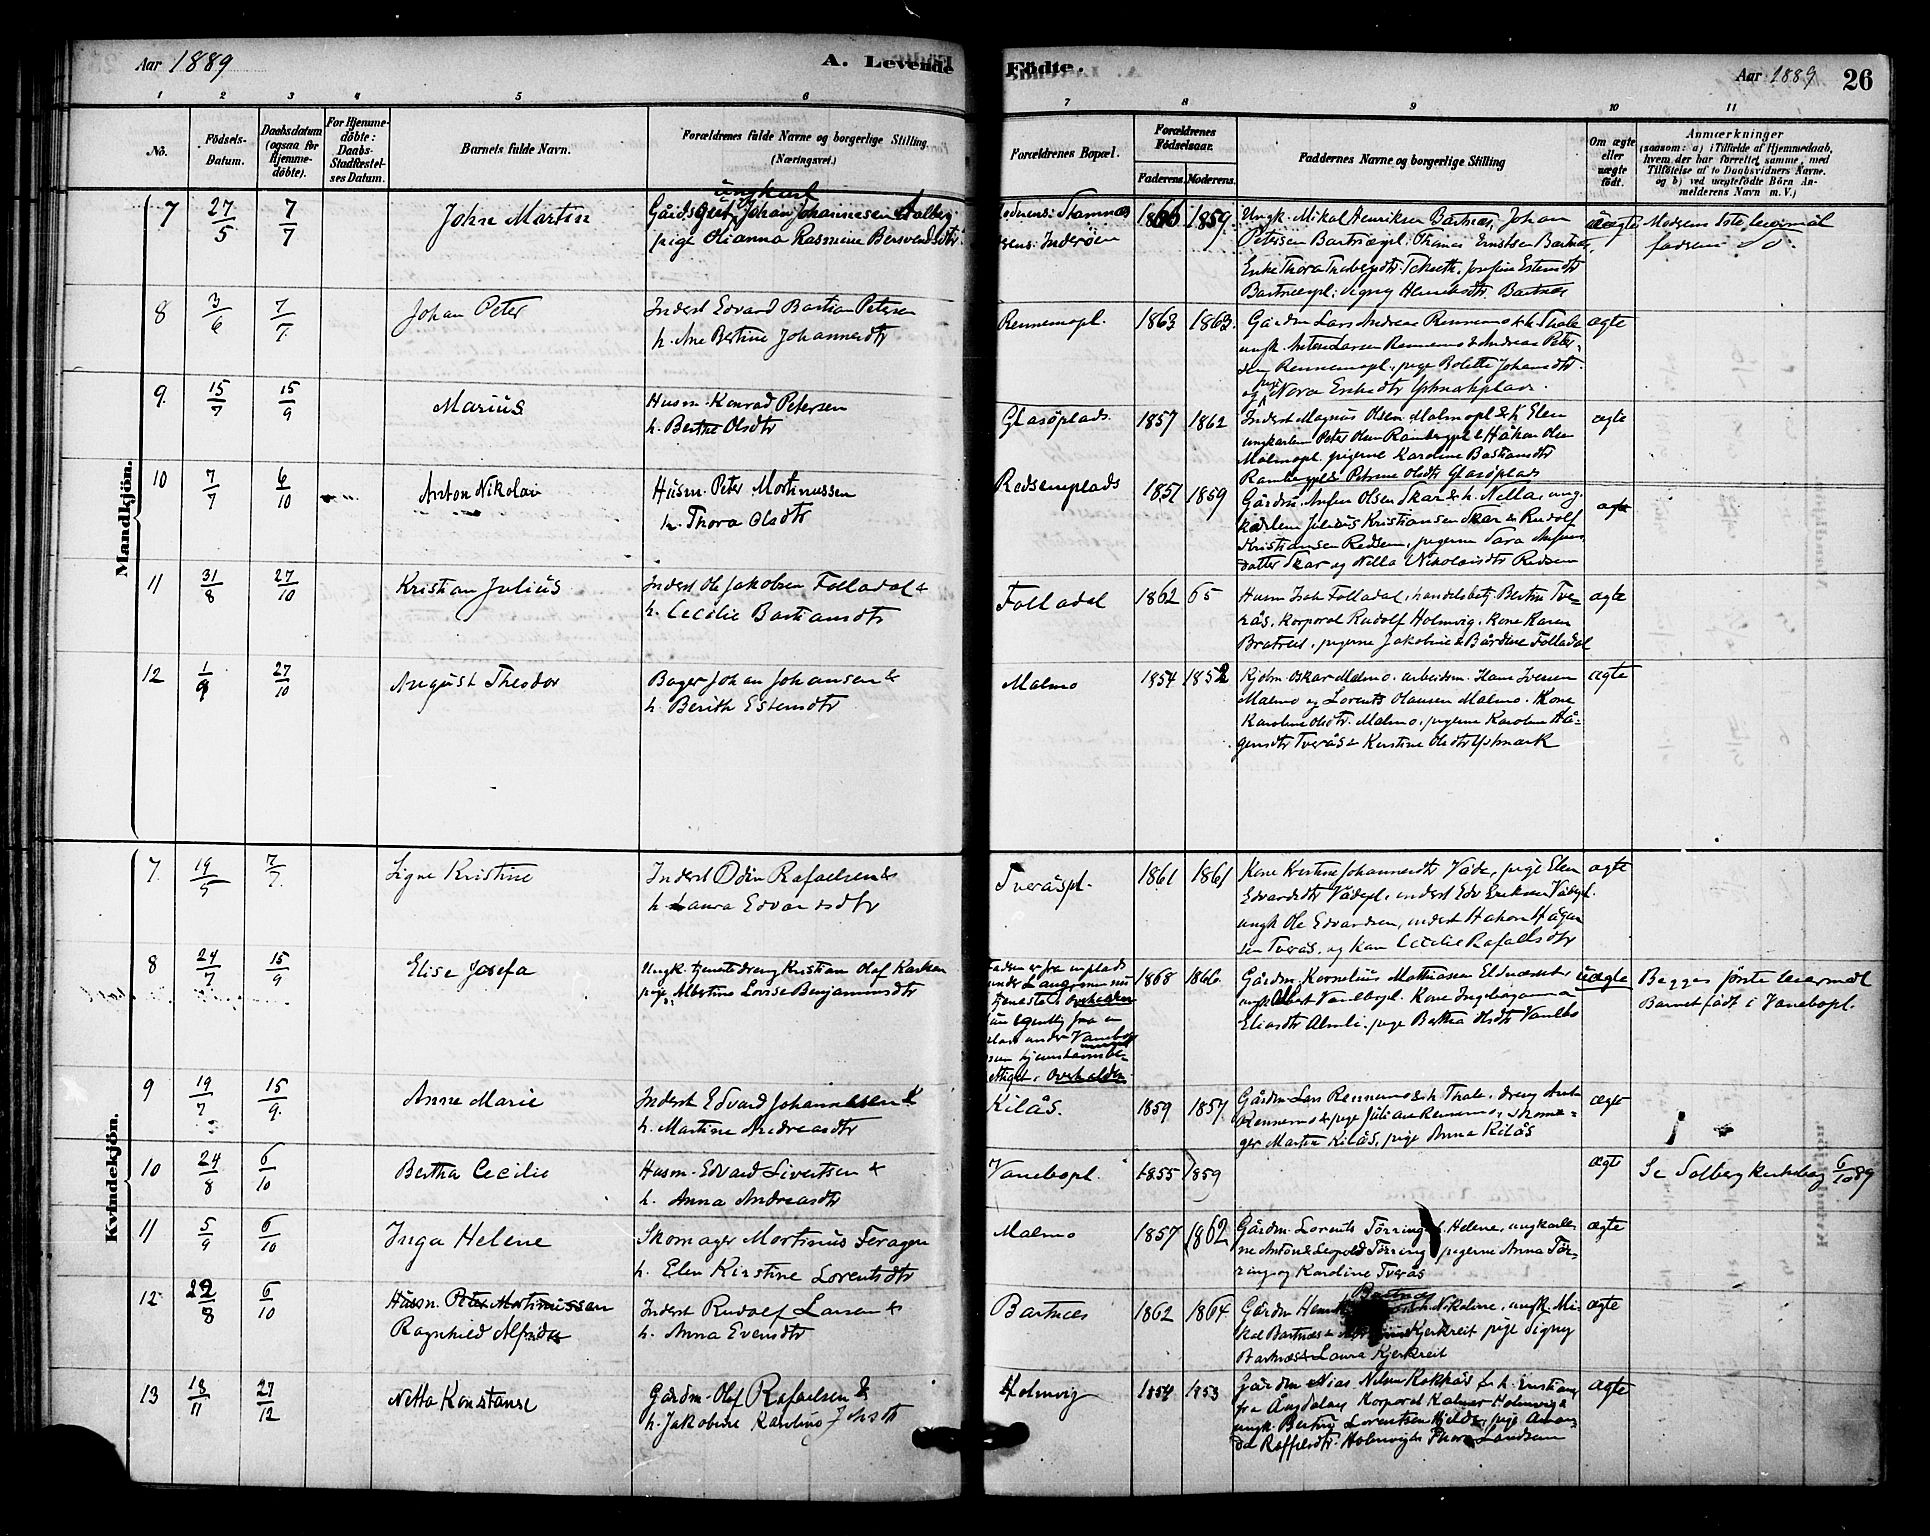 Aar 1889
A. Levende
Födte.
Aar 1889
26
1 2 3 4 5 6 7 8 9 10 11
No.
Födsels-
Datum.
Daabsdatum
(ogsaa for
Hjemme-
döbte).
For Hjemme-
döbte:
Daabs-
Stadfæstel-
ses Datum.
Barnets fulde Navn.
Forældrenes fulde Navne og borgerlige Stilling
(Næringsvei.)
Forældrenes Bopæl.
Forældrenes
Födselsaar.
Faderens. Moderens.
Faddernes Navne og borgerlige Stilling
Om ægte
eller
uægte
födt.
Anmærkninger
(saasom: a) i Tilfælde af Hjemmedaab,
hvem der har forrettet samme, med
Tilföielse af to Daabsvidners Navne.
og b) ved uægtefödte Börn An-
melderens Navn m. V.)
Mandkjön.
7 27/5 7/7 John Martin
ungkarl
Johan Johannesen Aalberg
pige Olianna Rasmine
Stamnes
Inderöen
1866 1859
Ungk. Mikal Henriksen Bartnæs, Johan
Petersen Bartnæspl. Thomas Ernstsen Bartnæs,
Enke Thora
Bartnæspl. Signy Henriksdtr. Bartnæs
uægte
Moderens 1ste leiermål
faderens do.
8 3/6 7/7 Johan Peter
Inderst Edvard Bastian Petersen
h. Ane Bertine Johannesdtr
Rennemopl. 1863 1863.
Gårdm Lars Andreas Rennemo & h. Thale
ungk. Anton Larsen Rennemo & Andreas Peter-
sen Rennemopl., pige Bolette Johansdtr.
og pige Nora
ægte
9. 15/7 15/9 Marius
Husm. Konrad Petersen
h. Berthe Olsdtr
Glasöplads. 1857 1862
Inderst Magnus Olsen Malmopl & h. Elen
ungkarlen Peter Olsen Rambergpl & Håkon Olsen
Malmopl. pigerne Karoline Bastiansdtr
Rambergpl & Petrine Olsdtr Glasöplads
ægte
10 7/7 6/10 Anton Nikolai
Husm. Peter Mortinussen
h. Thora Olsdtr
Redsemplads 1857 1859
Gårdm. Anfin Olsen Skar & h. Nella, ung-
karlene Julius Kristiansen Skar & Rudolf
Kristiansen Redsem, pigerne Sara Anfins
datter Skar og Nella Nikolaisdtr Redsem
ægte
11 31/8 27/10 Kristian Julius
Inderst Ole Jakobsen Folladal &
h. Cecilie Bastiansdtr
Folladal 1862 65
Husm Isak Folladal, handelsbetj. Bertin Tve-
rås, korporal Rudolf Holmvig, kone Karen
Bratreit, pigerne Jakobine & Bårdine Folladal
ægte
12 1/9 27/10 August Theodor
Bager Johan Johansen &
h. Berith Estensdtr
Malmo 1854 1852
Kjöbm. Oskar Malmo. arbeidsm. Hans Iversen
Malmo og Lorents Olausen Malmo. Kone
Karoline Olsdtr. Malmo, pigerne Karoline Hå-
gensdtr Tverås & Kerstine Olsdtr Ystmark
ægte
Kvindekjön.
7. 19/5 7/7. Signe Kristine
Inderst Odin Rafaelsen &
h. Laura Edvardsdtr
Tveråspl. 1861 1861
Kone Kerstine Johannesdtr Våde, pige Elen
Edvardsdtr Vådepl., inderst Edv Eriksen Vådepl.
ungk Ole Edvardsen, inderst Hakon Hågen
sen Tverås, og kone Cecilie Rafaelsdtr
ægte
8 24/7 15/9 Elise Josefa
Ungk. tjenestedreng Kristian Olaf
pige Albertine Lovise Benjaminsdtr
Faderen er fra en plads
under
tjenestedr. Overhalden
egentlig fra en
plads under Vanebo
hjemstavnsbe-
rettiget i Overhalden
1868 1866
Gårdm. Kornelius Mathiasen
ungk Albert Vanebopl. Kone Ingeborganna
Eliasdtr Almli. pige Berthea Olsdtr
uægte
Begges förste leiermål
Barnet födt i Vanebopl.
9 19/7 15/9. Anne Marie
Inderst Edvard Johannesen &
h. Martine Andreasdtr
Kilås. 1859 1857
Gårdm Lars Rennemo & h. Thale, dreng Anton
Rennemo & pige Juliane Rennemo, skoma-
ger Martin Kilås, pige Anna Kilås
ægte
10 24/8 6/10 Bertha Cecilie
Husm. Edvard Sivertsen &
h. Anna Andreasdtr
Vanebopl. 1855 1859
ægte
Se Solberg kirkebog 6/10 89
11 5/9 6/10 Inga Helene
Skomager Mortinus Feragen
h. Elen Kirstine Lorentsdtr
Malmo 1857 1862
Gårdm. Lorents Törring h. Helene, ungkarle-
ne Anton & Leopold Törring, pigerne Anna Tör-
ring og Karoline Tverås
ægte
12 29/8 6/10 Husm. Peter Mortinussen
Ragnhild
Inderst Rudolf Larsen &
h. Anna Evensdtr
Bartnæs 1862 1864
Gårdm Henrik Bartnæs h. Nikoline, ungk. Mi-
kal Bartnæs & Kjerkreit pige Signy
Bartnæs & Laura Kjerkreit
ægte
13 18/11 27/12 Netta Konstanse
Gårdm. Olaf Rafaelsen &
h. Jakobine Karoline
Holmvig 1854 1853
Gårdm Nils Kristiane
fra Korporal Holmvig &
ungk Bertin Lorentsen pige Aman-
da Holmvig & Thora
ægte